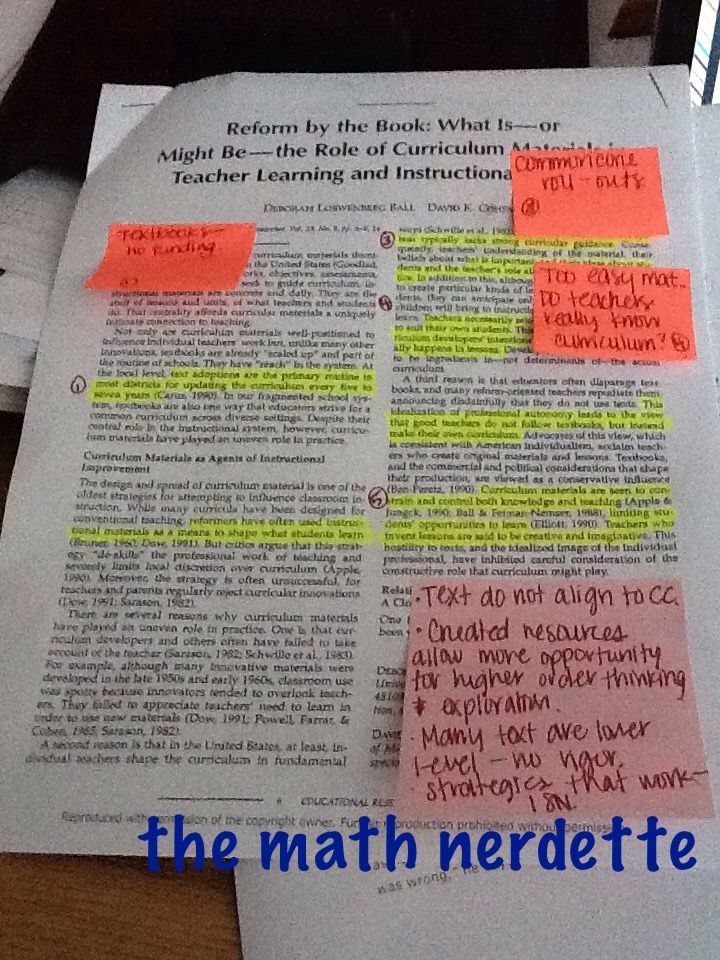 Reform by the Book: What Is—or
Might Be—the Role of Curriculum
Teacher Learning and Instructional
DEBORAH LOEWENBERG BALL DAVID K.
common core
roll-outs
Textbooks-
no funding
Too easy mat..
Do teachers
really know
curriculum?
curriculum materials
the United States (Goodlad,
objectives, assessments,
seek to guide curriculum,
materials are concrete and daily. They are the
stuff of lessons and units, of what teachers and students
do. That centrality affords curricular materials a uniquely
intimate connection to teaching.
Not only are curriculum materials well-positioned to
influence individual teachers' work but, unlike many other
innovations, textbooks are already "scaled up" and part of
the routine of schools. They have "reach" in the system. At
the local level, text adoptions are the primary routine in
1
most districts for updating the curriculum every five to
seven years (Carus, 1990). In our fragmented school sys-
tem, textbooks are also one way that educators strive for a
common curriculum across diverse settings. Despite their
central role in the instructional system, however, curricu-
lum materials have played an uneven role in practice.
Curriculum Materials as Agents of Instructional
Improvement
The design and spread of curriculum material is one of the
oldest strategies for attempting to influence classroom in-
struction. While many curricula have been designed for
conventional teaching, reformers have often used instruc-
tional materials as a means to shape what students learn
(Bruner, 1960; Dow, 1991). But critics argue that this strat-
egy "de-skills" the professional work of teaching and
severely limits local discretion over curriculum (Apple,
1990). Moreover, the strategy is often unsuccessful, for
teachers and parents regularly reject curricular innovations
(Dow, 1991; Sarason, 1982).
There are several reasons why curriculum materials
have played an uneven role in practice. One is that cur-
riculum developers and others often have failed to take
account of the teacher (Sarason, 1982; Schwille et al., 1983).
For example, although many innovative materials were
developed in the late 1950s and early 1960s, classroom use
was spotty because innovators tended to overlook teach-
ers. They failed to appreciate teachers' need to learn in
order to use new materials (Dow, 1991; Powell, Farrar, &
Cohen, 1985; Sarason, 1982).
A second reason is that in the United States, at least, in-
dividual teachers shape the curriculum in fundamental
ways (Schwille et al.,
3
typically lacks strong curricular guidance.
quently, teachers' understanding of the material, their
beliefs about what is important,
dents and the teacher's role
In addition to this,
to create particular kinds of
dents, they can anticipate only
children will bring to
Teachers necessarily
to suit their own students.
riculum developers'
ally happens in lessons.
to be ingredients in—not determinents of—the actual
curriculum.
A third reason is that educators often disparage text-
books, and many reform-oriented teachers repudiate them,
announcing disdainfully that they do not use texts. This
idealization of professional autonomy leads to the view
that good teachers do not follow textbooks, but instead
make their own curriculum. Advocates of this view, which
is consistent with American individualism, acclaim teach-
ers who create original materials and lessons. Textbooks,
and the commercial and political considerations that shape
their production, are viewed as a conservative influence
5
(Ben-Peretz, 1990). Curriculum materials are seen to con-
strain and control both knowledge and teaching (Apple &
Jungck, 1990; Ball & Feiman-Nemser, 1988), limiting stu-
dents' opportunities to learn (Elliott, 1990). Teachers who
invent lessons are said to be creative and imaginative. This
hostility to texts, and the idealized image of the individual
professional, have inhibited careful consideration of the
constructive role that curriculum might play.
· Text do not align to CC.
· Created resources
allow more opportunity
for higher order thinking
+ exploration.
· Many text are lower
level - no rigor.
· strategies that work-
ISN.
6 EDUCATIONAL
Reproduced with permission of the copyright owner. Further reproduction prohibited without
the math nerdette
was wrong,